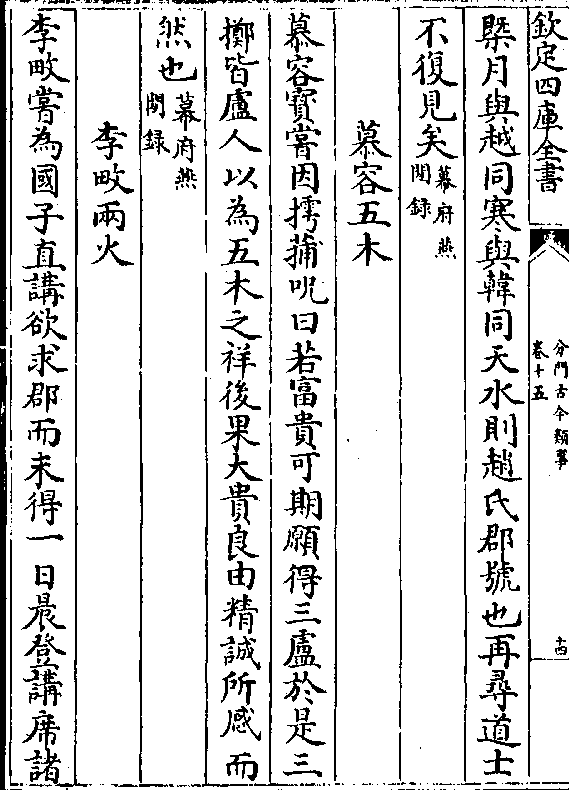 欽定四庫全書
分門古今類事
卷十五
十四
槼月與越同寒與韓同天水則趙氏郡號也再尋道士
不復見矣幕府燕
閒録
慕容五木
慕容寳嘗因摴蒱呪曰若富貴可期願得三盧於是三
擲皆盧人以為五木之祥後果大貴良由精誠所感而
然也幕府燕
閒録
李畋兩火
李畋嘗為國子直講欲求郡而未得一日晨登講席諸